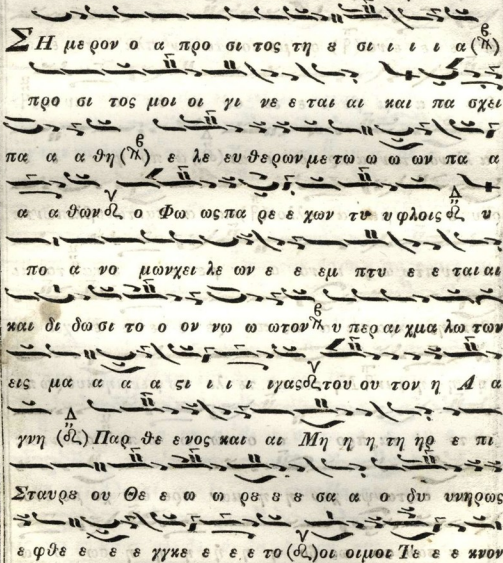 ΣΗ με ρον ο α προ σι τος τη ȣ σι ι ι ι α
προ σι τος μοι οι γι νε ε ται αι και πα σχει
πα α α θη ε λε ευ θε ρων με τω ω ω ων πα α
α α θων ο Φω ως πα ρε ε χων τυ υ φλοις υ
πο α νο μων χει λε ων ε ε εμ πτυ ε ε ται αι
και δι δω σι το ο ον νω ω ω τον υ περ αι χμα λω των
εις μα α α α ςι ι ι ι ι γας του ου τον η Α α
γνη Παρ θε ε νος και αι Μη η η τη ηρ ε πι
Σταυρȣ ου Θε ε ω ω ρε ε ε σα α ο δυ υνηρως
ε φθε ε ε ε γγκε ε ε ε το οι οιμοι Τε ε ε κνον